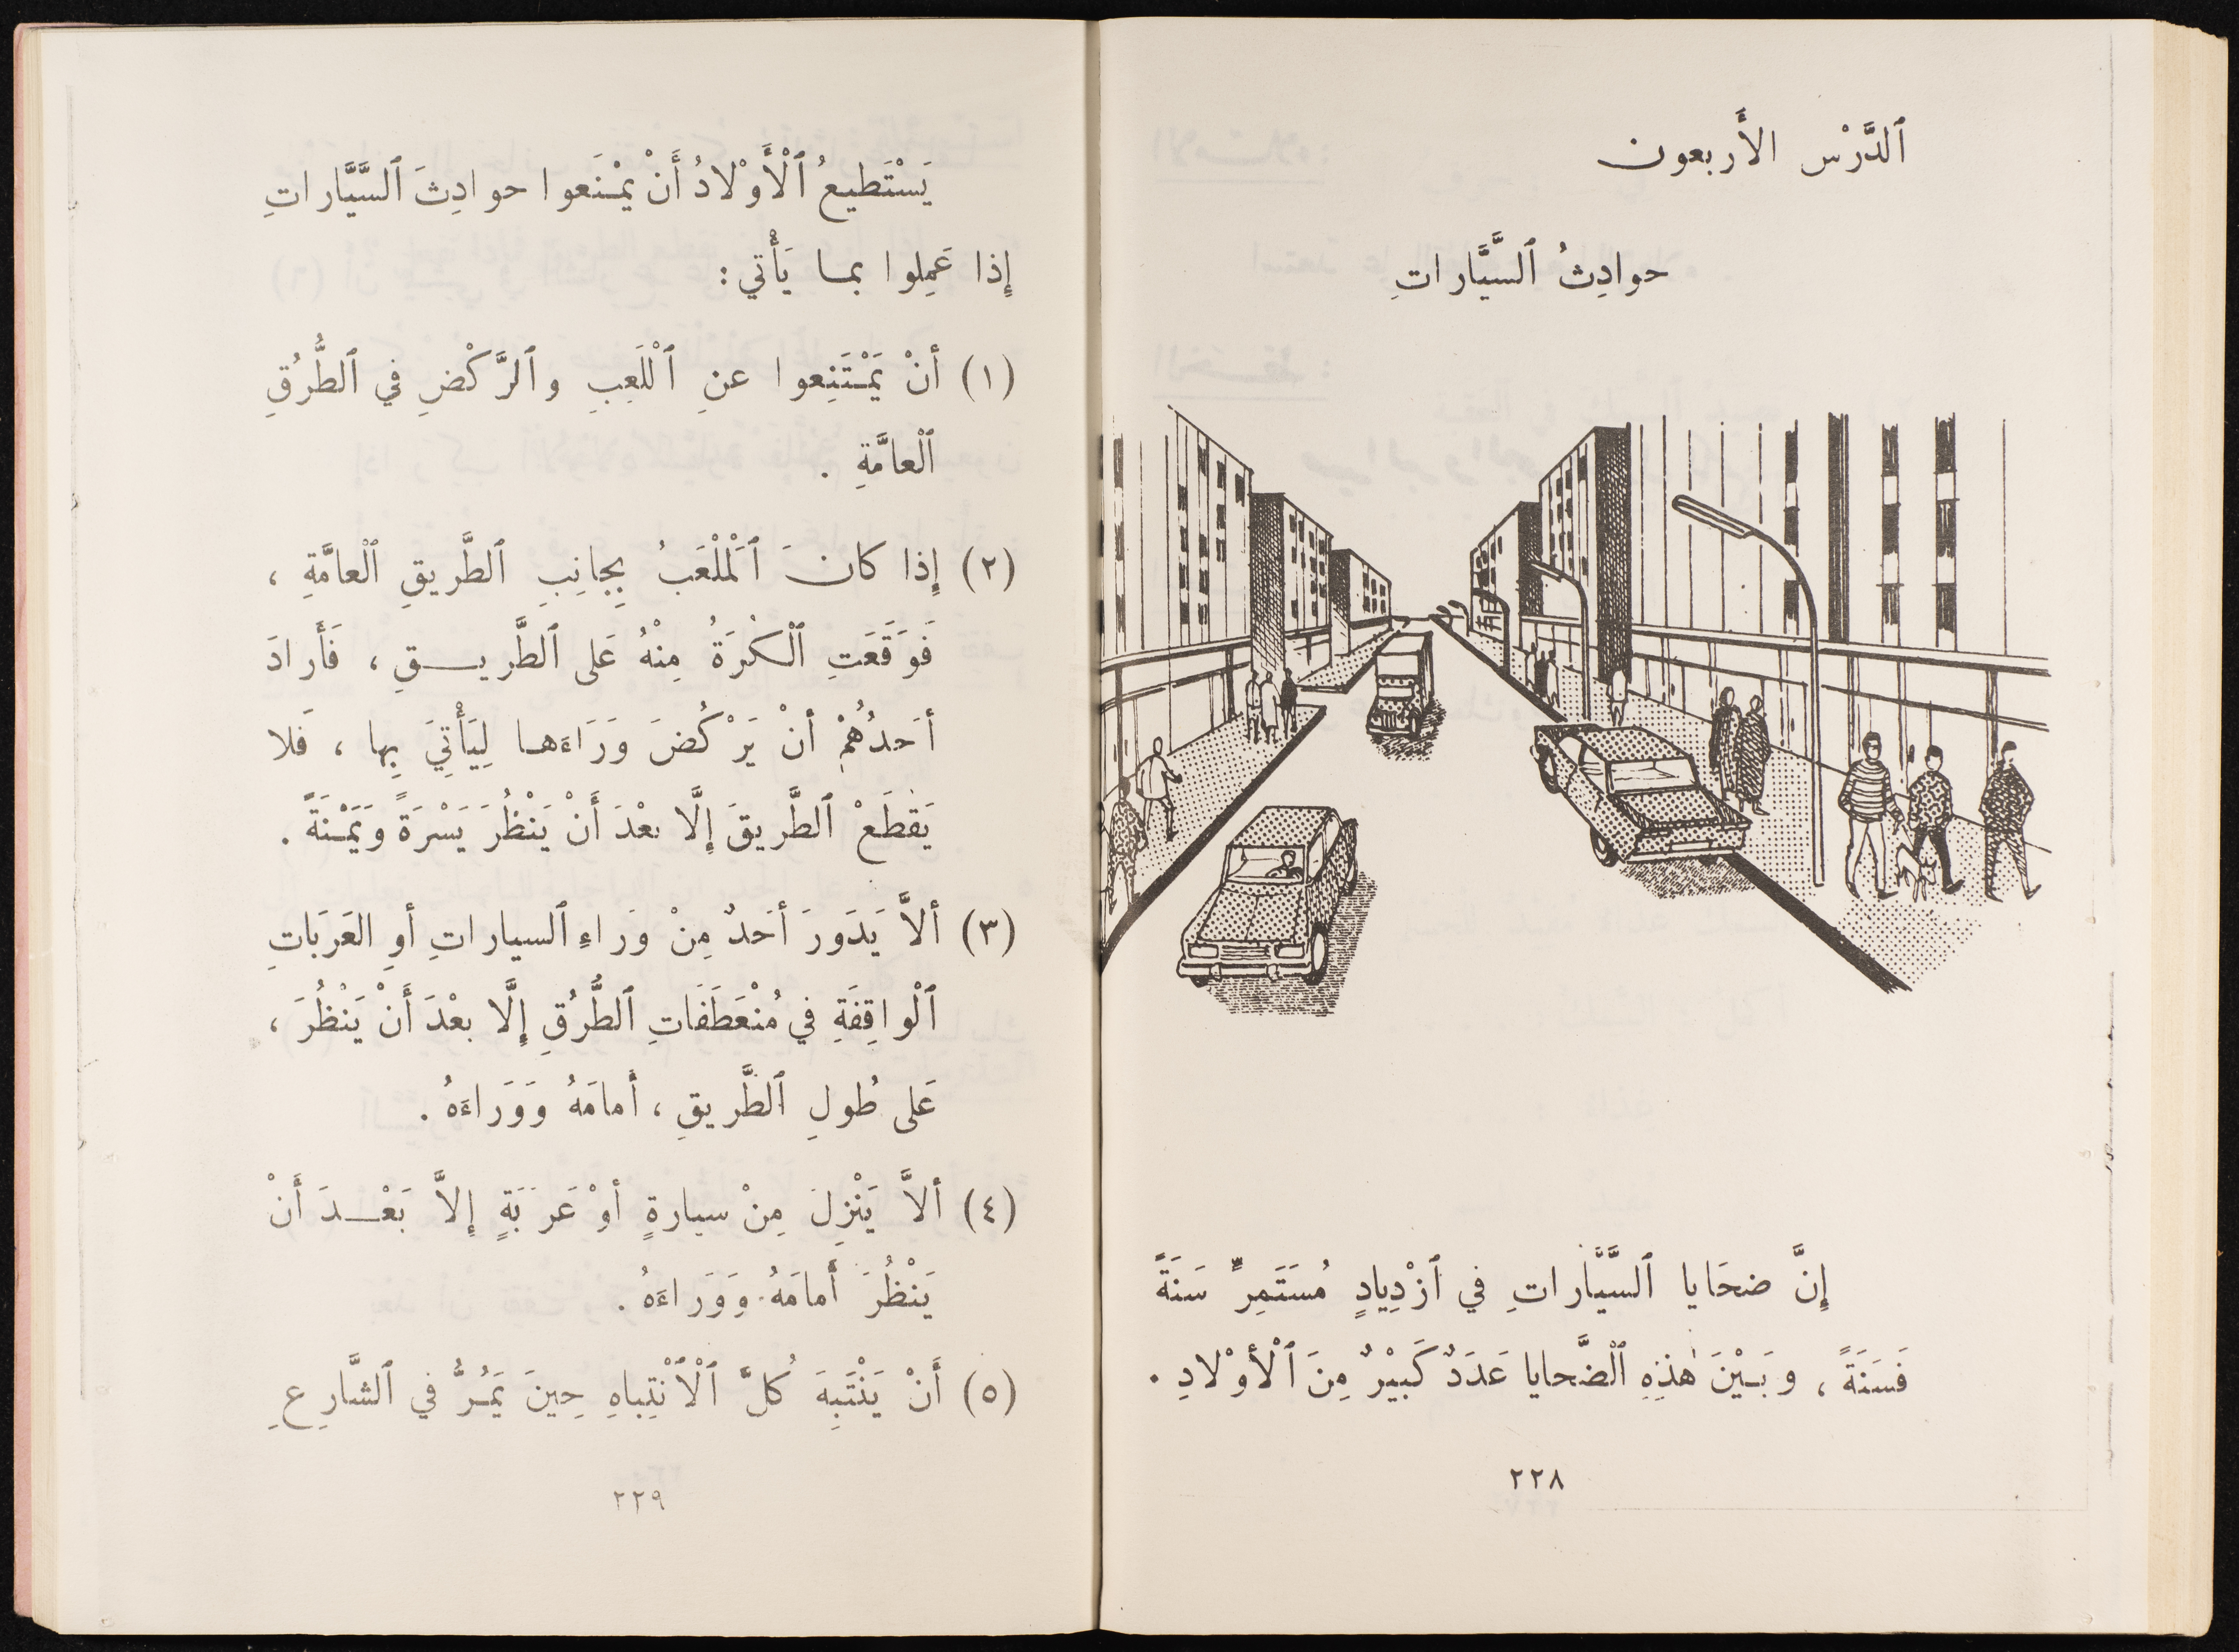 ٱلدَّرْس الأَربعون
حوادِثُ ٱلسَّيَّاراتِ
إِنَّ ضحَايا ٱلسَّيَّاراتِ في ٱزْدِيادٍ مُسَتَمِرٍّ سَنَةً
فَسَنَةً ، وبَيْنَ هٰذِهِ ٱلْضَّحايا عَدَدٌ كَبيْرٌ مِنَ ٱلْأَوْلادِ .
٢٢٨
يَسْتَطيعُ ٱلْأَوْلادُ أَنْ يَمْنَعوا حوادِثَ ٱلسَّيَّاراتِ
إِذا عَمِلوا بمـا يَأْتي :
(١) أنْ يَمْتَنِعوا عنِ ٱلْلَعِبِ وٱلرَّكْضِ في ٱلطُّرُقِ
ٱلْعامَّةِ .
(٢) إِذا كانَ ٱلْمَلْعَبُ بِجانِبِ ٱلطَّريقِ ٱلْعامَّةِ ،
فَوَقَعَتِ ٱلْكُرَةُ مِنْهُ عَلى ٱلطَّريـــقِ ، فَأَرادَ
أحَدُهُمْ أنْ يَرْكُضَ وَرَاءَهـا لِيَأْتِيَ بِها ، فَلا
يَقطَعْ ٱلطَّريقَ إِلَّا بعْدَ أَنْ يَنْظُرَ يَسْرَةً وَيَمْنَةً .
(٣) ألاَّ يَدَورَ أحَدٌ مِنْ وَراءِ ٱلسياراتِ أوِ العَرَبَاتِ
ٱلْواقِفَةِ في مُنْعَطَفَاتِ ٱلطُّرُقِ إِلَّا بعْدَ أَنْ يَنْظُرَ ،
عَلى طُولِ ٱلطَّريقِ ، أَمامَهُ وَوَراءَهُ .
(٤) ألاَّ يَنْزِلَ مِنْ سيارةٍ أوْ عَرَبَةٍ إلاَّ بَعْـــدَ أَنْ
يَنْظُرَ أَمامَهُ وَوَراءَهُ .
(٥) أَنْ يَنْتَبِهَ كُلَّ ٱلْٱنْتِباهِ حِينَ يَمُرُّ في ٱلشَّارِعِ
٢٢٩